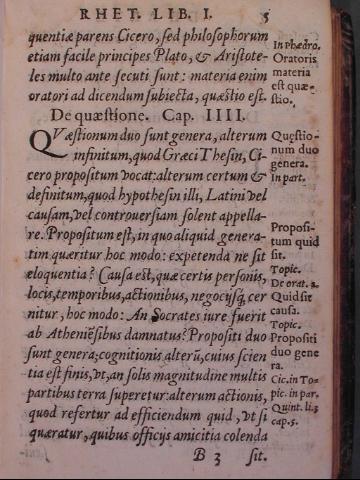 RHET. LIB. I. 5
quentiæ parens Cicero, sed philosophorum
etiam facile principes Plato, & Aristote-
les multo ante secuti sunt: materia enim
oratori ad dicendum subiecta, quæstio est.
In Phædro.
Oratoris
materia
est quæ-
stio.
De quæstione. Cap. IIII.
QVæstionum duo sunt genera, alterum
infinitum, quod Græci Thesin, Ci-
cero propositum vocat: alterum certum &
definitum, quod hypothesin illi, Latini vel
causam, vel controuersiam solent appella-
re. Propositum est, in quo aliquid genera-
tim quæritur hoc modo: expetenda ne sit
eloquentia? Causa est, quæ certis personis,
locis, temporibus, actionibus, negocijsq; cer
nitur, hoc modo: An Socrates iure fuerit
ab Atheniẽsibus damnatus? Propositi duo
sunt genera; cognitionis alterũ, cuius scien
tia est finis, vt, an solis magnitudine multis
partibus terra superetur: alterum actionis,
quod refertur ad efficiendum quid, vt si
quæratur, quibus officijs amicitia colenda
Quęstio-
num duo
genera.
In part.
Proposi-
tum quid
sit.
Topic.
De orat. 2.
Quid sit
causa.
Topic.
Propositi
duo gene
ra.
Cic. in To-
pic. in par.
Quint. li. 3
cap. 5.
B 3 sit.